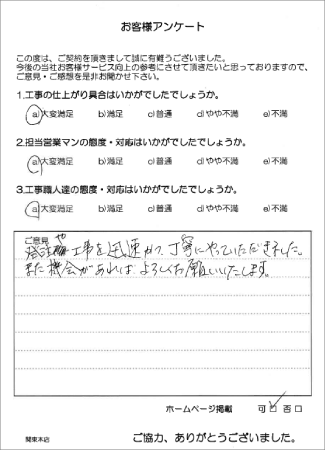 お客様アンケート
この度は、ご契約を頂きまして誠に有難うございました。
今後の当社お客様サービス向上の参考にさせて頂きたいと思っておりますので、
ご意見・ご感想を是非お聞かせ下さい。
1.工事の仕上がり具合はいかがでしたでしょうか。
a)大変満足 b)満足 c)普通 d)やや不満 e)不満
2.担当営業マンの態度・対応はいかがでしたでしょうか。
a)大変満足 b)満足 c)普通 d)やや不満 e)不満
3.工事職人達の態度・対応はいかがでしたでしょうか。
a)大変満足 b)満足 c)普通 d)やや不満 e)不満
ご意見 や
工事を迅速かつ、丁寧にやっていただきました。
また機会があれば よろしくお願いいたします。
ホームページ掲載 可 □ 否 □
関東本店
ご協力、ありがとうございました。